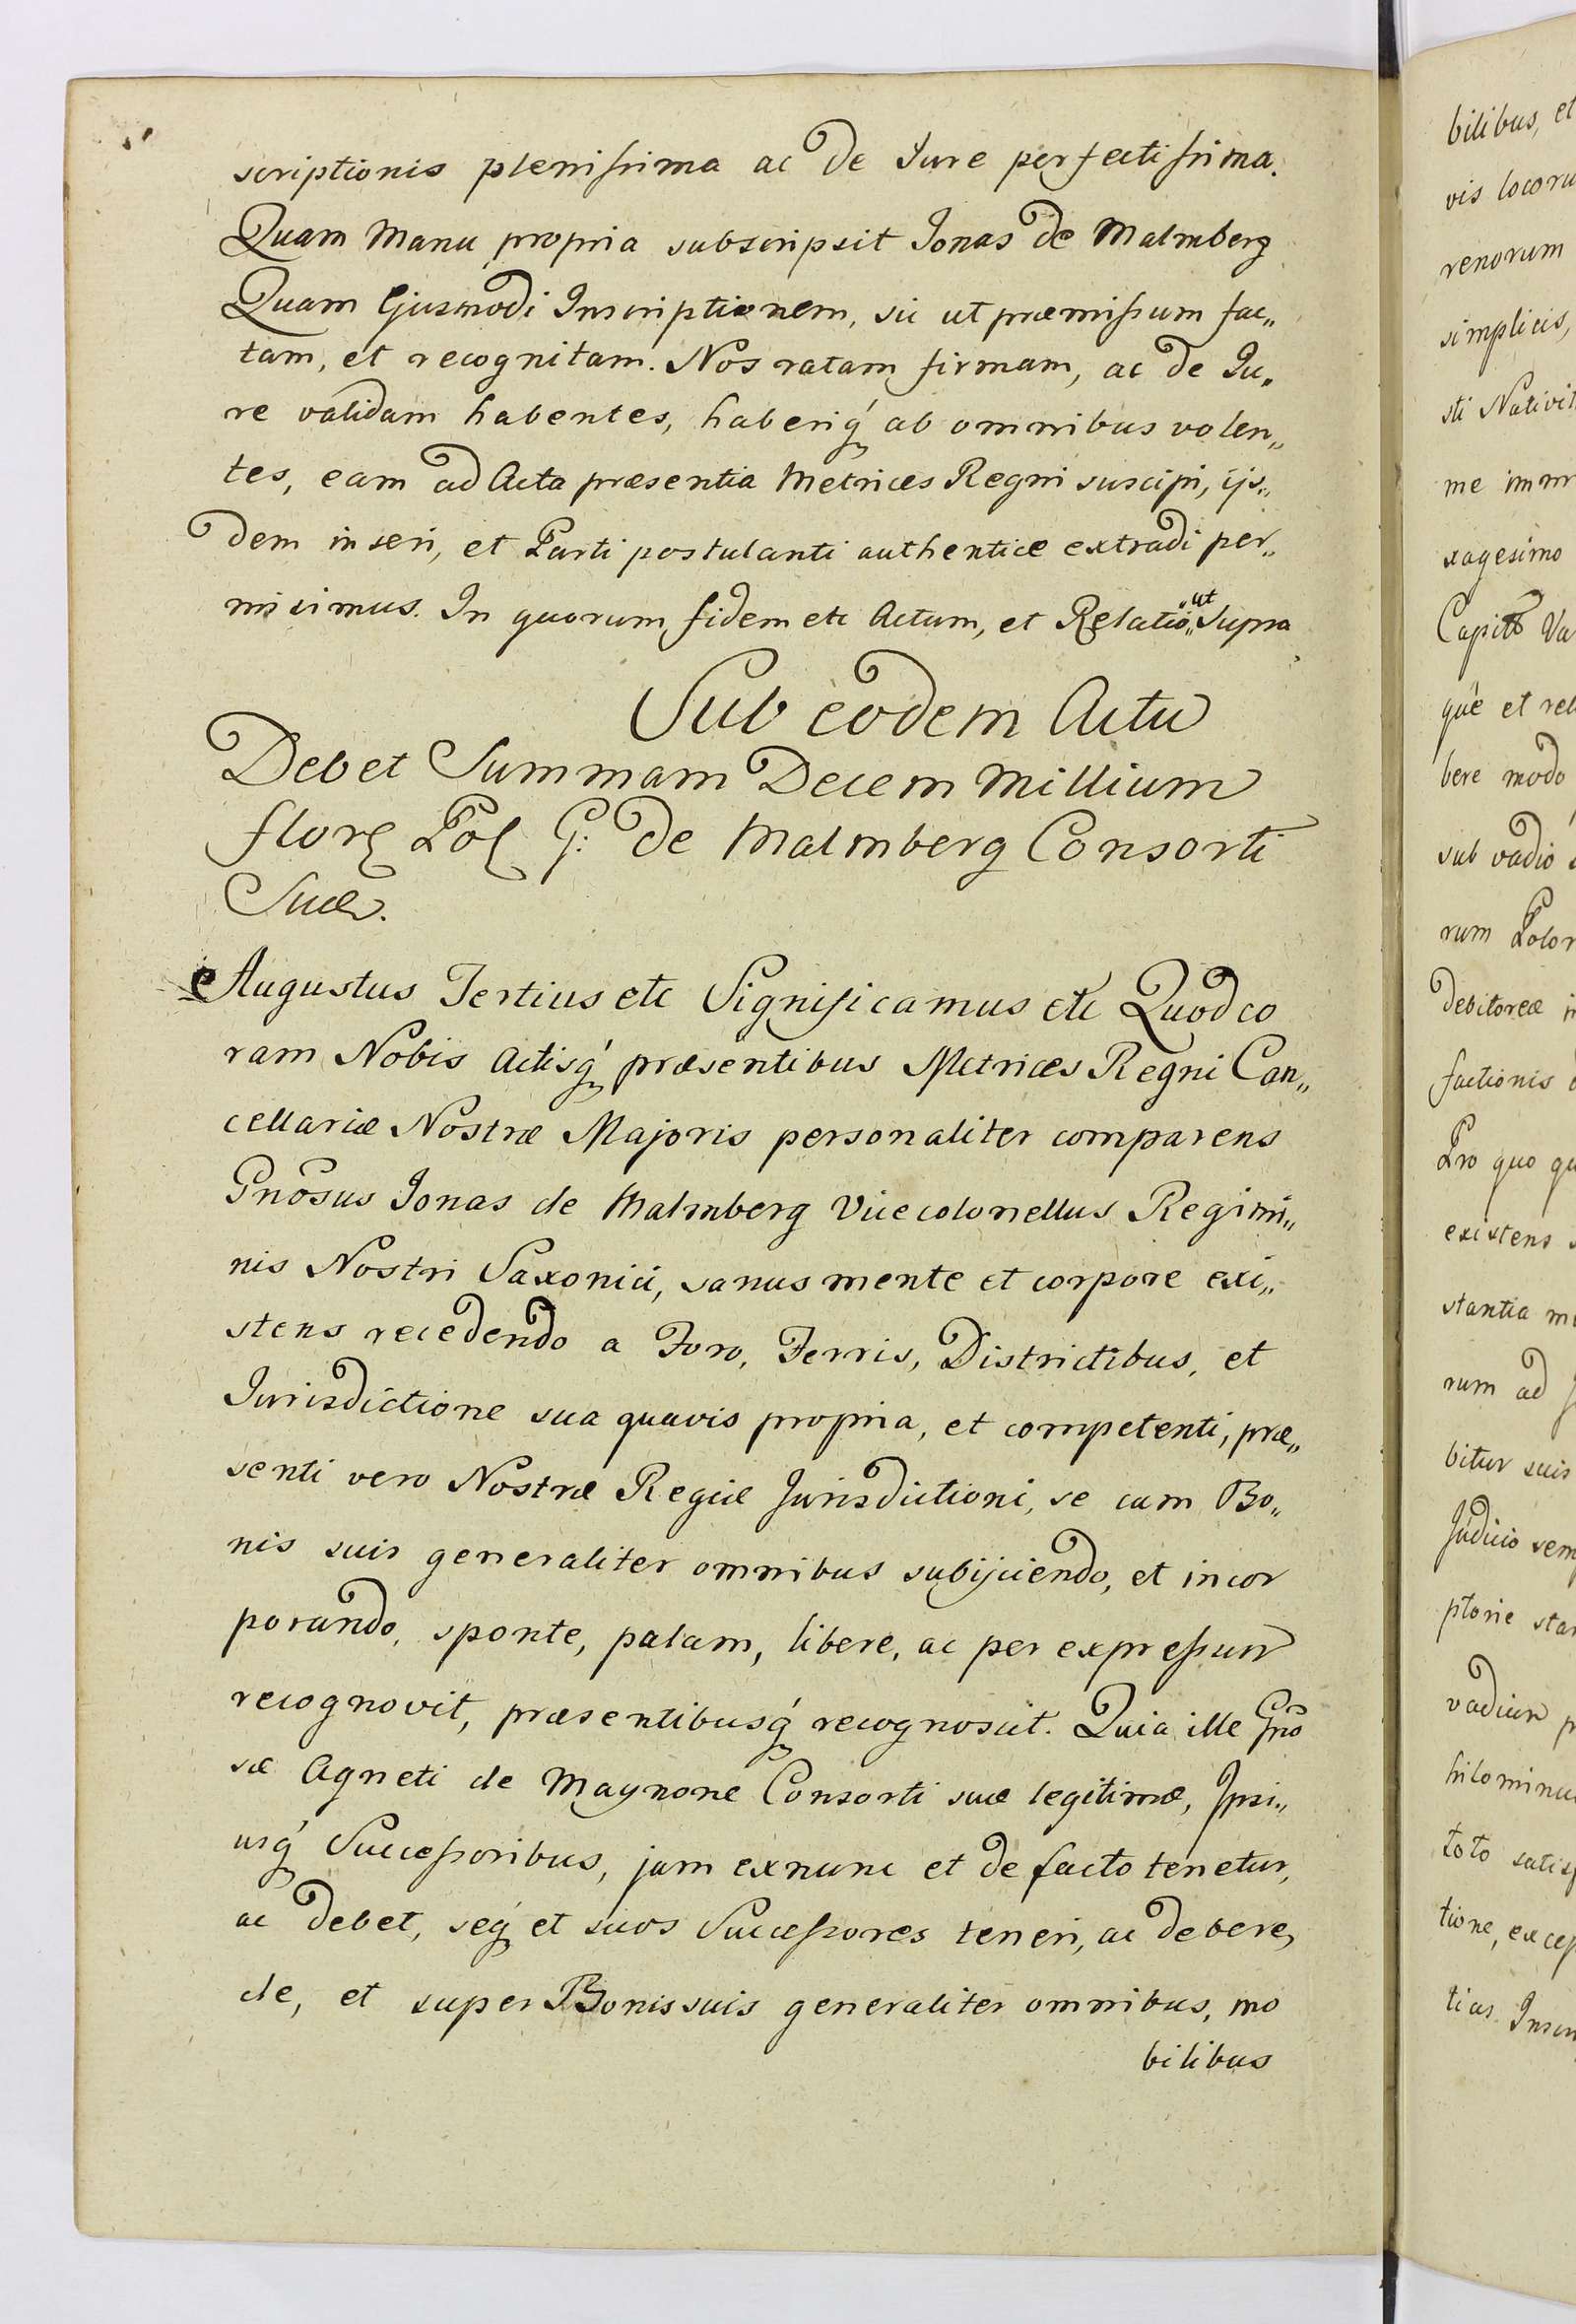 scriptionis plenissima ac de Jure perfectissima.
Quam Manu propria subscripsit Jonas de Malmberg
Quam Ejusmodi Inscriptionem, sic ut præmissum fac„
tam, et recognitam. Nos ratam firmam, ac de Ju„
re validam habentes, haberiq́ ab omnibus volen„
tes, eam ad Acta præsentia Metrices Regni suscipi, ijs„
dem inseri, et Parti postulanti authentice extradi per„
misimus. In quorum fidem etc Actum, et Relatio„ ut Supra
Sub eodem Actu
Debet Summam Decem Millium
flor Pol G: de Malmberg Consorti
Suæ.
Augustus Tertius etc Significamus etc Quod co
ram Nobis Actisq́ præsentibus Metrices Regni Can„
cellariæ Nostræ Majoris personaliter comparens
Gnosus Jonas de Malmberg Vicecolonellus Regimi„
nis Nostri Saxonici, sanus mente et corpore exi„
stens recedendo a Foro, Terris, Districtibus, et
Jurisdictione sua quavis propria, et competenti, præ„
senti vero Nostræ Regiæ Jurisdictioni, se cum Bo„
nis suis generaliter omnibus subijciendo, et incor
porando, sponte, palam, libere, ac per expressum
recognovit, præsentibusq́ recognoscit. Quia ille Gno
sæ Agneti de Maynone Consorti suæ legitimæ, Ipsi„
usq́ Successoribus, jam exnunc et de facto tenetur,
ac debet, seq́ et suos Successores teneri, ac debere,
de, et super Bonis suis generaliter omnibus, mo
bilibus
bilibus, et
vis locoru
renorum
simplicis,
sti Nativit
me imm
xagesimo
Capit Va
que et rel
bere modo
sub vadio
rum Polon
debitoreæ in
factionis
Pro quo qu
existens
stantia m
rum ad
bitur suis
Judicio sem
ptorie star
vadium p
hilominu
toto satisf
tione, excep
tias. Inscri